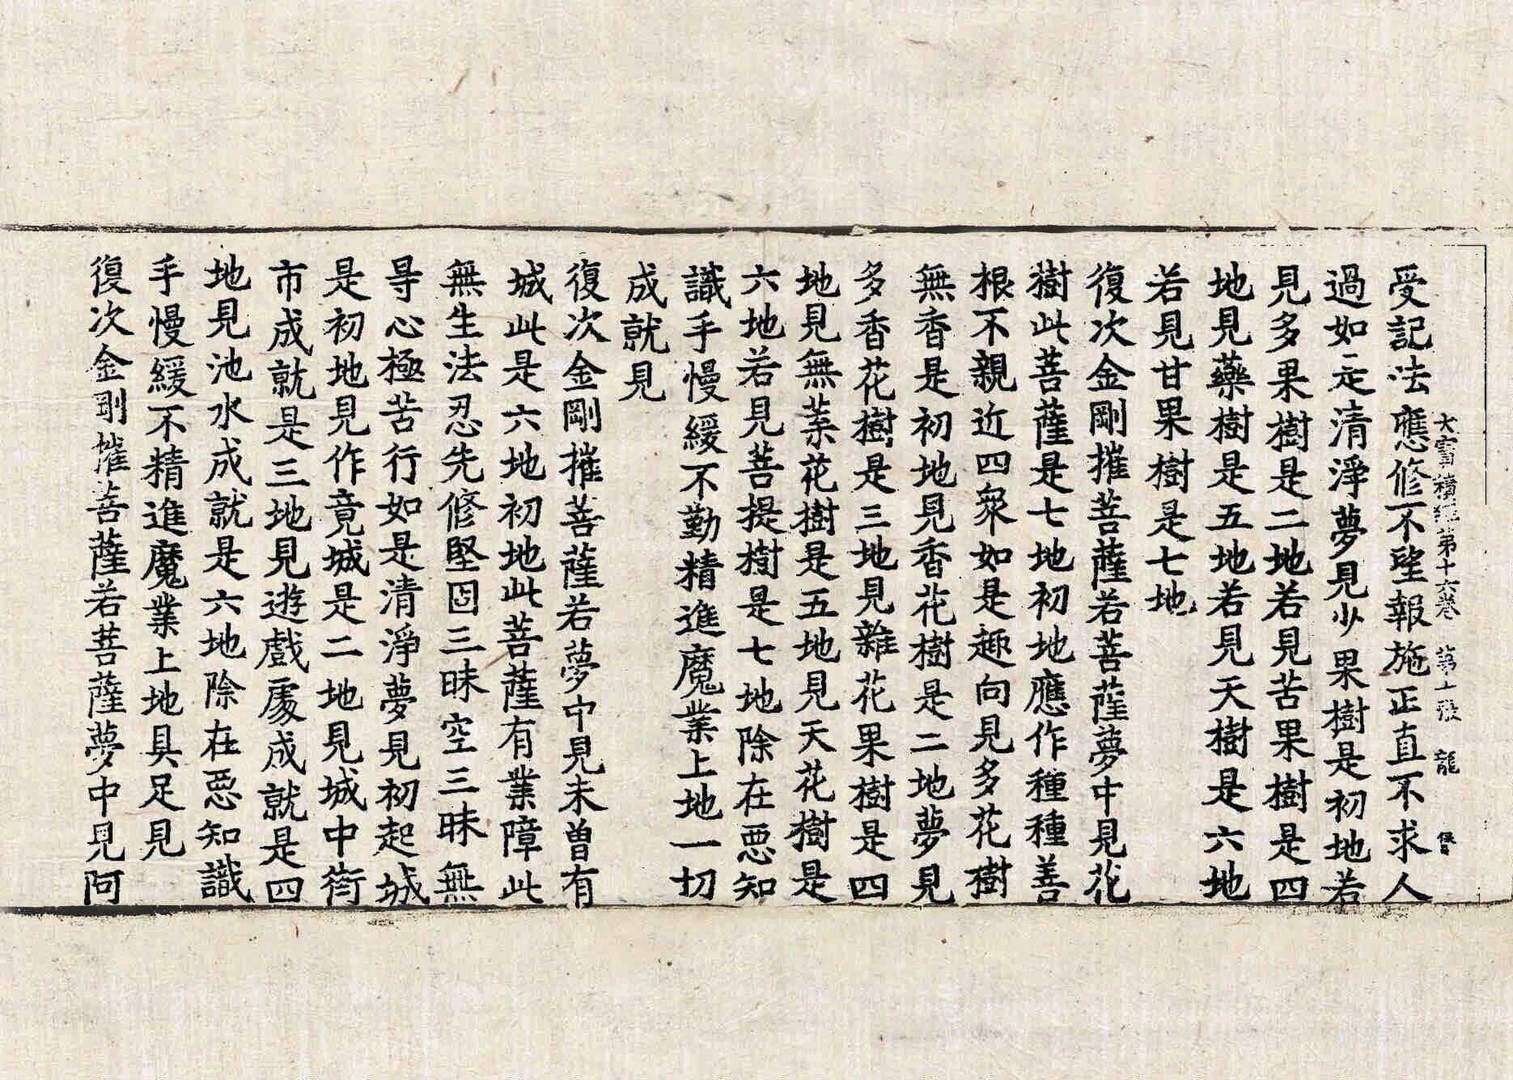 大寶積經第十六卷 第十張 龍
受記法應修不望報施正直不求人
過如是清淨夢見少果樹是初地若
見多果樹是二地若見苦果樹是四
地見藥樹是五地若見天樹是六地
若見甘果樹是七地
復次金剛摧菩薩若菩薩夢中見花
樹此菩薩是七地初地應作種種善
根不親近四衆如是趣向見多花樹
無香是初地見香花樹是二地夢見
多香花樹是三地見雜花果樹是四
地見無葉花樹是五地見天花樹是
六地若見菩提樹是七地除在惡知
識手慢緩不勤精進魔業上地一切
成就見
復次金剛摧菩薩若夢中見未曾有
城此是六地初地此菩薩有業障此
無生法忍先修堅固三昧空三昧無
㝵心極苦行如是清淨夢見初起城
是初地見作竟城是二地見城中街
市成就是三地見遊戲處成就是四
地見池水成就是六地除在惡知識
手慢緩不精進魔業上地具足見
復次金剛摧菩薩若菩薩夢中見阿